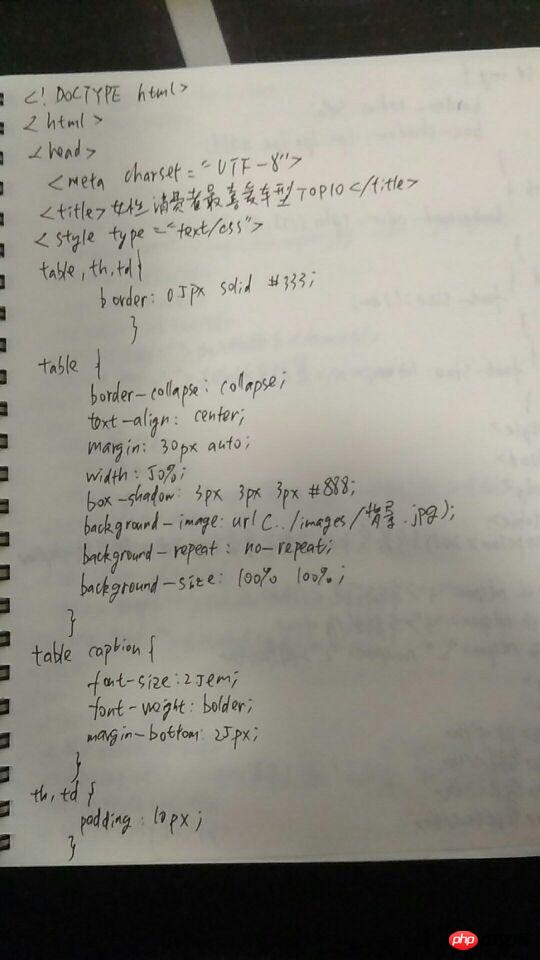 <!DOCTYPE html>
<html>
<head>
<meta charset="UTF-8">
<title>女性消费者最喜爱车型TOP10</title>
<style type="text/css">
table,th,td{
border: 0.5px solid #333;
}
table {
border-collapse: collapse;
text-align: center;
margin: 30px auto;
width: 50%;
box-shadow: 3px 3px 3px #888;
background-image: url(../images/背景.jpg);
background-repeat: no-repeat;
background-size: 100% 100%;
}
table caption {
font-size: 2.5em;
font-weight: bolder;
margin-bottom: 25px;
}
th, td {
padding: 10px;
}
php